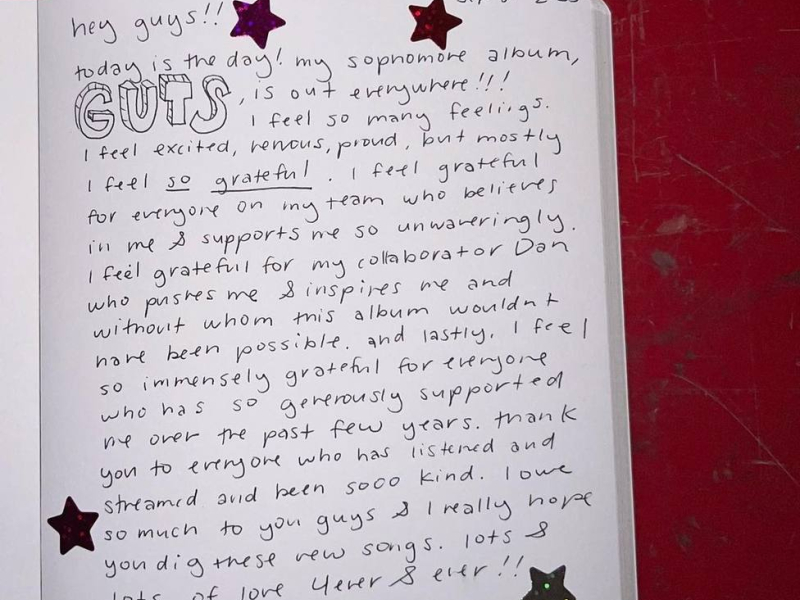 hey guys!!
today is the day! my sophomore album,
GUTS, is out everywhere!!!
I feel so many feelings.
I feel excited, nervous, proud, but mostly
I feel so grateful. I feel grateful
for everyone on my team who believes
in me & supports me so unwaveringly.
I feel grateful for my collaborator Dan
who pushes me & inspires me and
without whom this album wouldnt
have been possible. and lastly, I feel
so immensely grateful for everyone
who has so generously supported
me over the past few years. thank
you to everyone who has listened and
streamed and been sooo kind. I owe
so much to you guys & I really hope
you dig these new songs. lots &
lots of love 4ever & ever!!